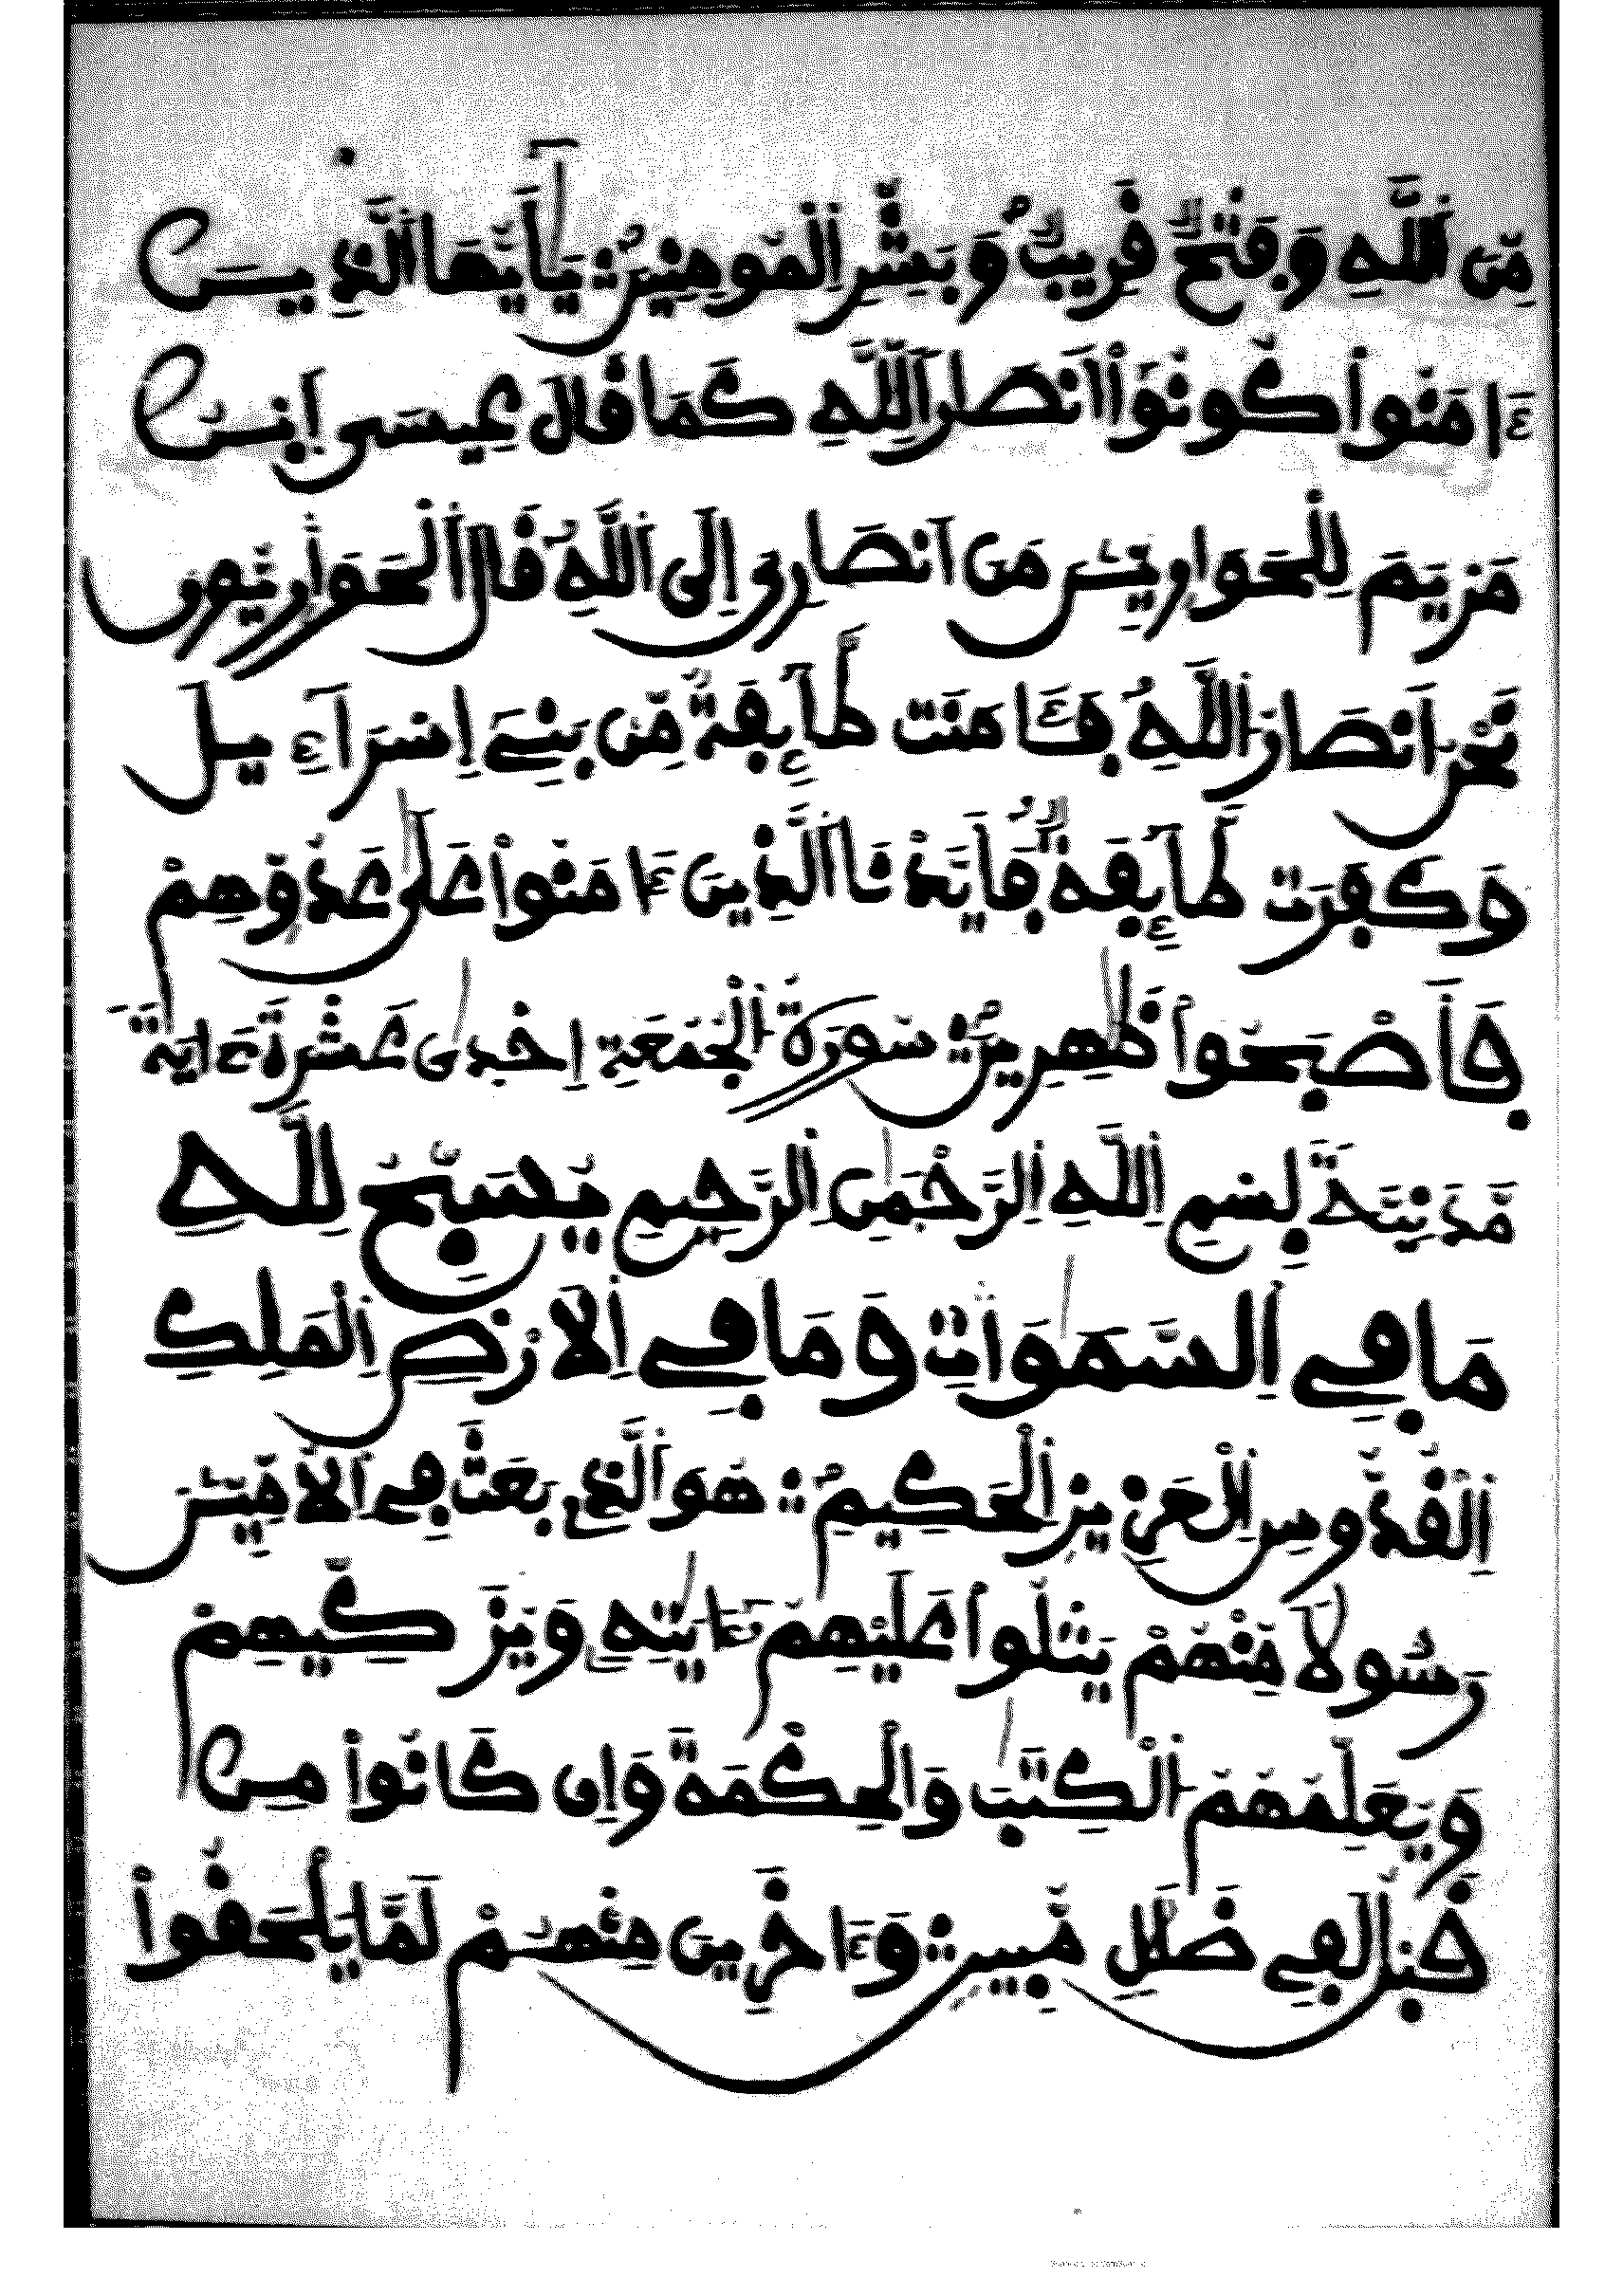 مِّنَ اَ۬للَّهِ وَفَتْحٌ قَرِيبٌ وَبَشِّرِ اِ۬لْمُومِنِينَ يَٰأَيُّهَا اَ۬لذِينَ
ءَامَنُواْ كُونُوٓاْ أَنصَاراَ اَ۬للَّهِ كَمَا قَالَ عِيسَى اَ۪بْنُ
مَرْيَمَ لِلْحَوَارِيِّـۧنَ مَنَ اَنصَارِيَ إِلَى اَ۬للَّهِ قَالَ اَ۬لْحَوَارِيُّونَ
نَحْنُ أَنصَارُ اُ۬للَّهِ فَـَٔامَنَت طَّآئِفَةٌ مِّنۢ بَنِےٓ إِسْرَآءِيلَ
وَكَفَرَت طَّآئِفَةٌ فَأَيَّدْنَا اَ۬لذِينَ ءَامَنُواْ عَلَىٰ عَدُوِّهِمْ
فَأَصْبَحُواْ ظَٰهِرِينَ سُورَةُ اُ۬لْجُمُعَةِ إِحْدَى عَشْرَةَ ءَايَةً
مَّدَنِيَّةٌ بِسْمِ اِ۬للَّهِ اِ۬لرَّحْمَٰنِ اِ۬لرَّحِيمِ يُسَبِّحُ لِلهِ
مَا فِے اِ۬لسَّمَٰوَٰتِ وَمَا فِے اِ۬لَارْضِ اِ۬لْمَلِكِ
اِ۬لْقُدُّوسِ اِ۬لْعَزِيزِ اِ۬لْحَكِيمِ هُوَ اَ۬لذِے بَعَثَ فِے اِ۬لُامِّيِّـۧنَ
رَسُولاً مِّنْهُمْ يَتْلُواْ عَلَيْهِمُۥٓ ءَايَٰتِهِۦ وَيُزَكِّيهِمْ
وَيُعَلِّمُهُمُ اُ۬لْكِتَٰبَ وَالْحِكْمَةَ وَإِن كَانُواْ مِن
قَبْلُ لَفِے ضَلَٰلٍ مُّبِينٍ وَءَاخَرِينَ مِنْهُمْ لَمَّا يَلْحَقُواْ